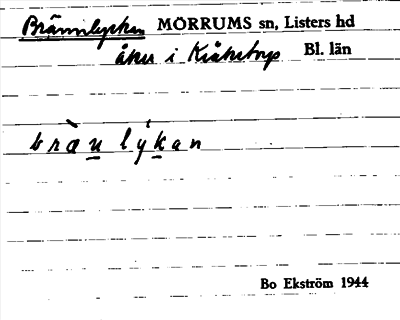 Brännlyckan MÖRRUMS sn, Listers hd
åker i Kråketorp Bl. län
bræ̀n lýkan
Bo Ekström 1944